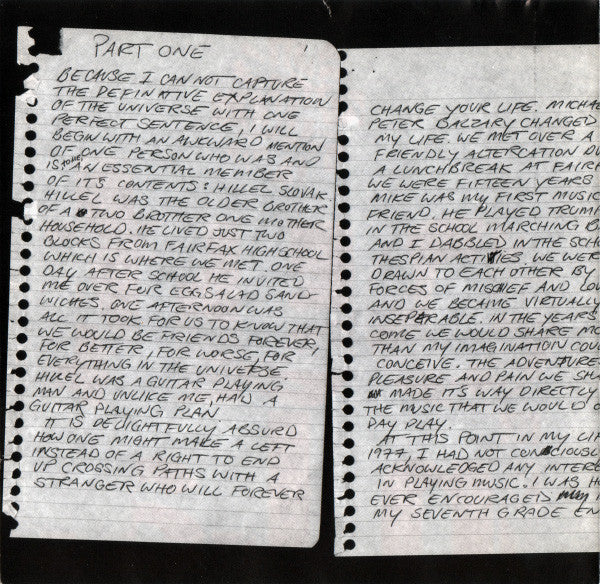 PART ONE
BECAUSE I CAN NOT CAPTURE
THE DEFINATIVE EXPLANATION
OF THE UNIVERSE WITH ONE
PERFECT SENTENCE, I WILL
BEGIN WITH AN AWKWARD MENTION
OF ONE PERSON WHO WAS AND
IS, TO ME, AN ESSENTIAL MEMBER
OF ITS CONTENTS: HILLEL SLOVAK
HILLEL WAS THE OLDER BROTHER
OF A TWO BROTHER ONE MOTHER
HOUSEHOLD. HE LIVED JUST TWO
BLOCKS FROM FAIRFAX HIGH SCHOOL
WHICH IS WHERE WE MET. ONE
DAY AFTER SCHOOL HE INVITED
ME OVER FOR EGG SALAD SAND-
WICHES. ONE AFTERNOON WAS
ALL IT TOOK FOR US TO KNOW THAT
WE WOULD BE FRIENDS FOREVER,
FOR BETTER, FOR WORSE, FOR
EVERYTHING IN THE UNIVERSE
HILLEL WAS A GUITAR PLAYING
MAN AND UNLIKE ME, HAD A
GUITAR PLAYING PLAN
IT IS DELIGHTFULLY ABSURD
HOW ONE MIGHT MAKE A LEFT
INSTEAD OF A RIGHT TO END
UP CROSSING PATHS WITH A
STRANGER WHO WILL FOREVER
CHANGE YOUR LIFE. MICHAE
PETER BALZARY CHANGED
MY LIFE. WE MET OVER A
FRIENDLY ALTERCATION DU
A LUNCHBREAK AT FAIRF
WE WERE FIFTEEN YEARS
MIKE WAS MY FIRST MUSIC
FRIEND. HE PLAYED TRUMP
IN THE SCHOOL MARCHING B
AND I DABBLED IN THE SCHO
THESPIAN ACTIVIES. WE WER
DRAWN TO EACH OTHER BY
FORCES OF MISCHIEF AND LOV
AND WE BECAME VIRTUALLY
INSEPARABLE. IN THE YEARS
COME WE WOULD SHARE MO
THAN MY IMAGINATION COUL
CONCEIVE. THE ADVENTURE
PLEASURE AND PAIN WE SHA
MADE IT'S WAY DIRECTLY
THE MUSIC THAT WE WOULD O
DAY PLAY.
AT THIS POINT IN MY LIF
1977, I HAD NOT CONSCIOUSLY
ACKNOWLEDGED ANY INTERE
IN PLAYING MUSIC. I WAS H
EVER ENCOURAGED
MY SEVENTH GRADE EN